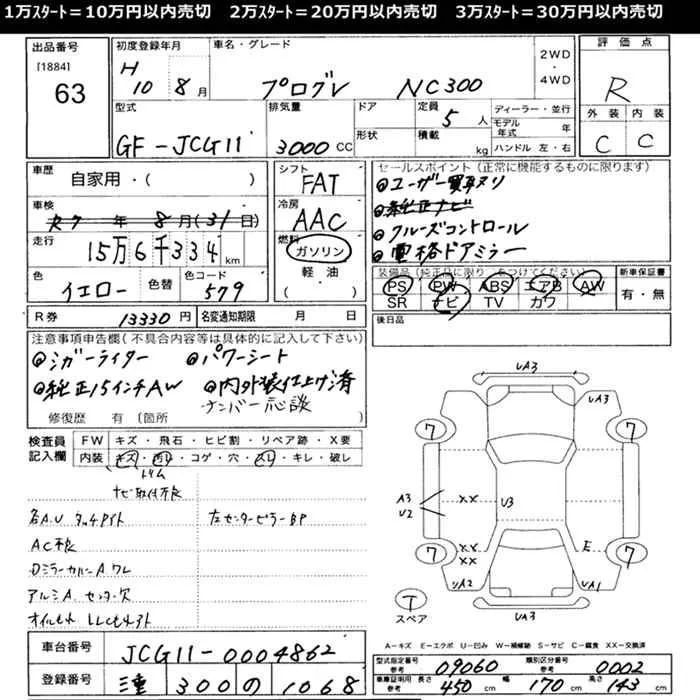 1万スタート=10万円以内売切　2万スタート=20万円以内売切　3万スタート=30万円以内売切
出品番号
[1884]
63
初度登録年月
H 10 8月
車名・グレード
プログレ NC300
2WD・4WD
評価点
R
外装 内装
C C
型式
GF-JCG11
排気量
3000CC
ドア
形状
定員
5人
積載 kg
ディーラー・並行
モデル年式 年
ハンドル 左・右
車歴
自家用・( )
車検
R7年8月(31日)
走行
15万6千334km
色
イエロー
色替
色コード
579
シフト
FAT
冷房
AAC
燃料
ガソリン
軽油
セールスポイント(正常に機能するものに限ります)
◎ユーザー買取り
◎純正ナビ
◎クルーズコントロール
◎電格ドアミラー
装備品(純正品に限り をつけてください)
PS PW ABS エアB AW
SR ナビ TV カワ
新車保証書
有・無
R券 13330円
名変通知期限 月 日
後日品
注意事項申告欄(不具合内容等は具体的に記入して下さい)
◎シガーライター ◎パワーシート
◎純正15インチAW ◎内外装仕上げ済
ナンバー応談
修復歴 有 [箇所
検査員記入欄
FW キズ・飛石・ヒビ割・リペア跡・X要
内装 キズ・汚レ・コゲ・穴・スレ・キレ・破レ
トリム
ナビ取付不良
各A.U タッチペイト 左センターピラーBP
AC不良
DミラーカバーA ワレ
アルミA センター欠
オイルもれ LLCもれアト
UA3
UA3
A3
U2
XX
U3
XX
E
UA2
UA1
UA3
7 7 7 7
T
スペア
A-キズ E-エクボ U-凹み W-補修跡 S-サビ C-腐食 XX-交換済
車台番号
JCG11-0004862
登録番号
三重 300 の 1068
型式指定番号 参考 09060
類別区分番号 参考 0002
車庫証明用 参考 長さ 450cm 幅 170cm 高さ 143cm